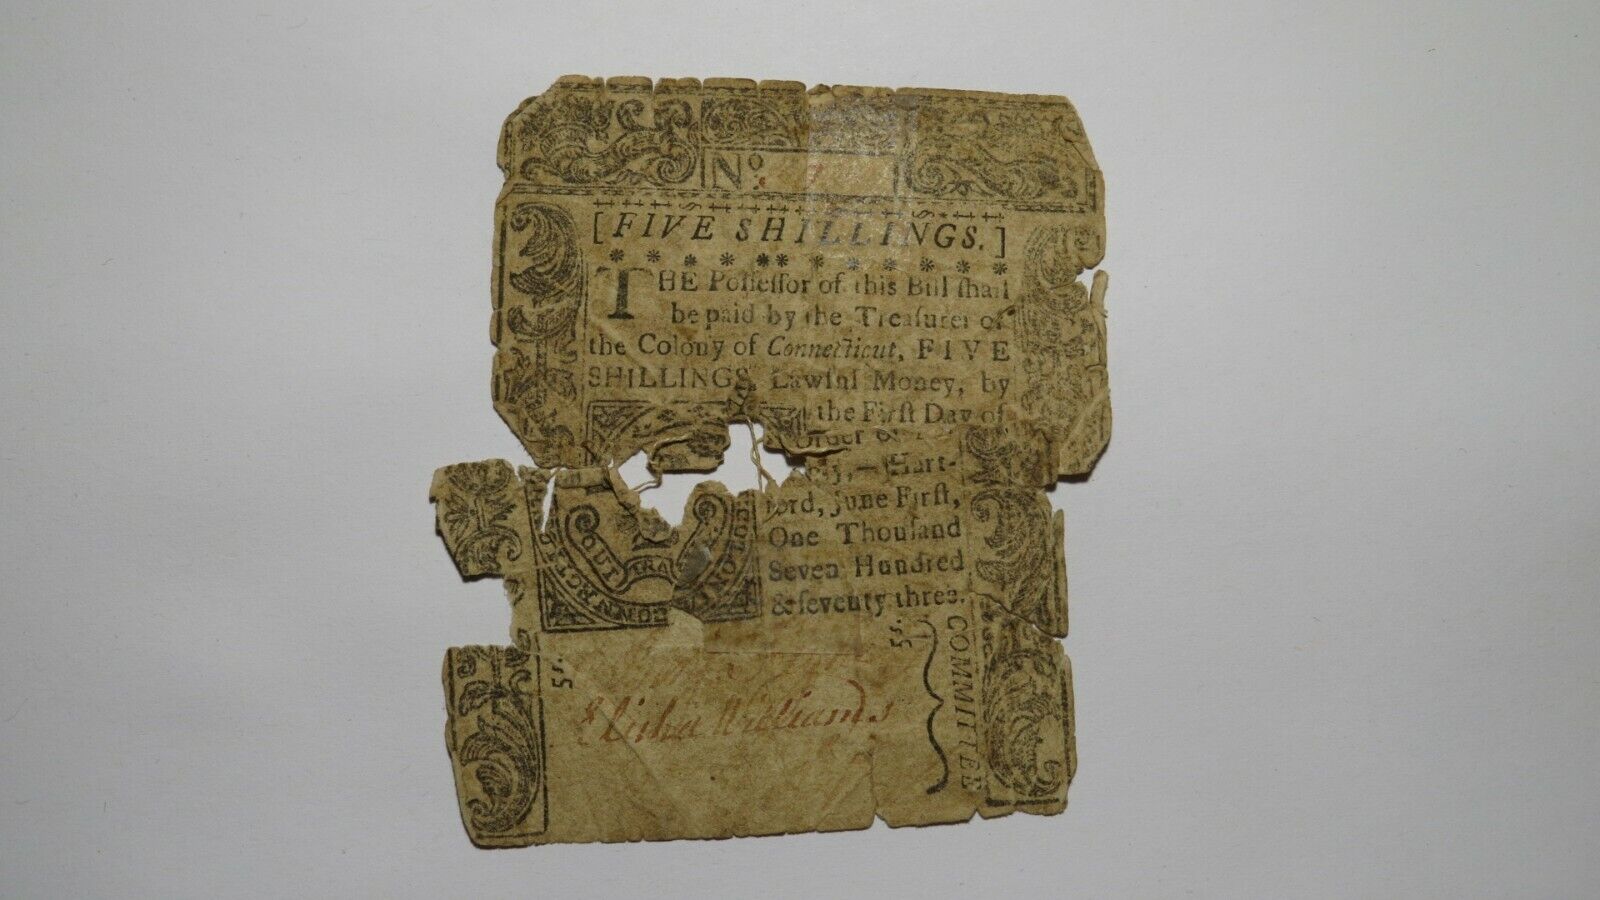 No.
[FIVE SHILLINGS.]
THE Poſſeſſor of this Bill ſhall
be paid by the Treaſurer of
the Colony of Connecticut, FIVE
SHILLINGS, Lawful Money, by
the Firſt Day of
Order of
Hart-
ford, June Firſt,
One Thouſand
Seven Hundred
& ſeventy three.
5s.
5s.
COMMITTEE
Elisha Williams